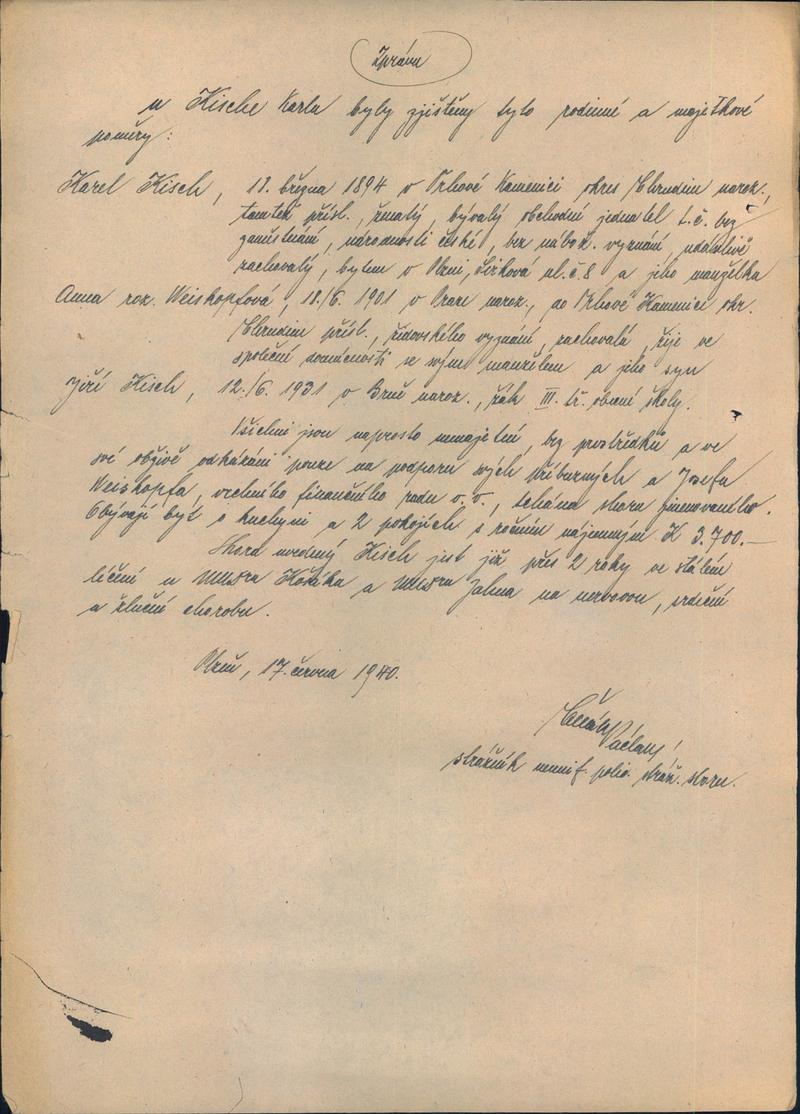 Zpráva
u Kische Karla byly zjištěny tyto rodinné a majetkové
poměry:
Karel Kisch, 13. března 1894 v Trhové Kamenici okres Chrudim naroz.,
tamtéž přísl., ženatý, bývalý obchodní jednatel t.č. bez
zaměstnání, národnosti české, bez nábož. vyznání, udánlivě
zachovalý, bytem v Plzni, Žižková ul. č. 8 a jeho manželka
Anna roz. Weiskopfová, 18./6. 1901 v Praze naroz., do Trhové Kamenice okr.
Chrudim přísl., židovského vyznání, zachovalá, žije ve
společné domácnosti se svým manželem a jeho syn
Jiří Kisch, 12./6. 1931 v Brně naroz., žák III. tř. obecné školy.
Všichni jsou naprosto nemajetní, bez prostředků a ve
své obživě odkázáni pouze na podporu svých příbuzných a Josefa
Weiskopfa, vrchního finančního rady v.v., tchána shora jmenovaného.
Obývají byt o kuchyni a 2 pokojích s ročním nájemným K 3.700.—
Shora uvedený Kisch jest již přes 2 roky ve stálém
léčení u MUDra a MUDra na nervovou, srdeční
a žluční chorobu.
Plzeň, 17. června 1940.
Václav
strážník unif. polic. stráž. sboru.